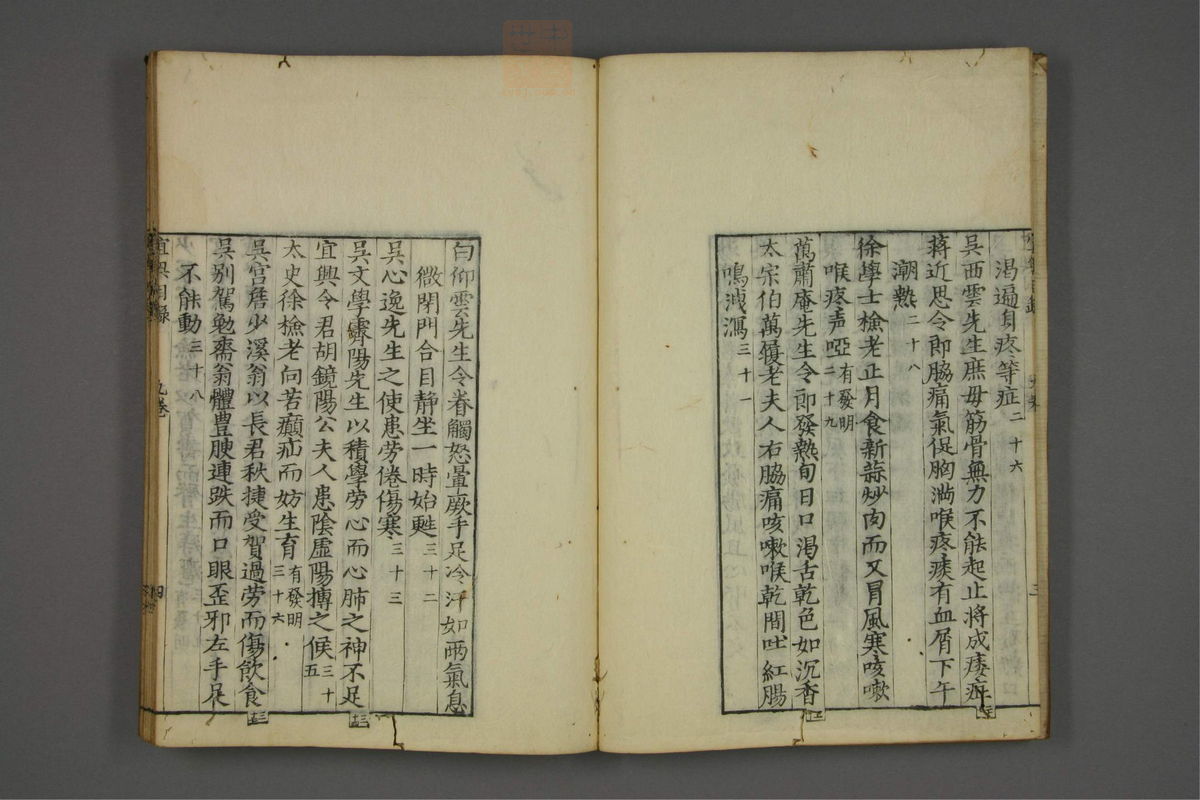 渴遍身疼等症二十六
吳西雲先生庶母筋骨無力不能起止將成痿痺
蔣近思令郎脇痛氣促胸滿喉疼痰有血屑下午
潮熱二十八
徐學士檢老正月食新蒜炒肉而又冒風寒咳嗽
喉疼声啞有發明二十九
萬肅庵先生令郎發熱旬日口渴舌乾色如沉香
太宗伯萬履老夫人右脇痛咳嗽喉乾間吐紅腸
鳴洩瀉三十一
白仰雲先生令眷觸怒暈厥手足冷汗如雨氣息
微閉門合目静坐一時始甦三十二
吳心逸先生之使患劳倦傷寒三十三
吳文學霽陽先生以積學劳心而心肺之神不足
宜興令君胡鏡陽公夫人患陰虛陽搏之候三十五
太史徐檢老向苦癲疝而妨生育有發明三十六
吳宮詹少溪翁以長君秋捷受賀過劳而傷飲食
吳别駕勉齋翁體豊腴連跌而口眼歪邪左手足
不能動三十八
宜興目錄 九卷 四